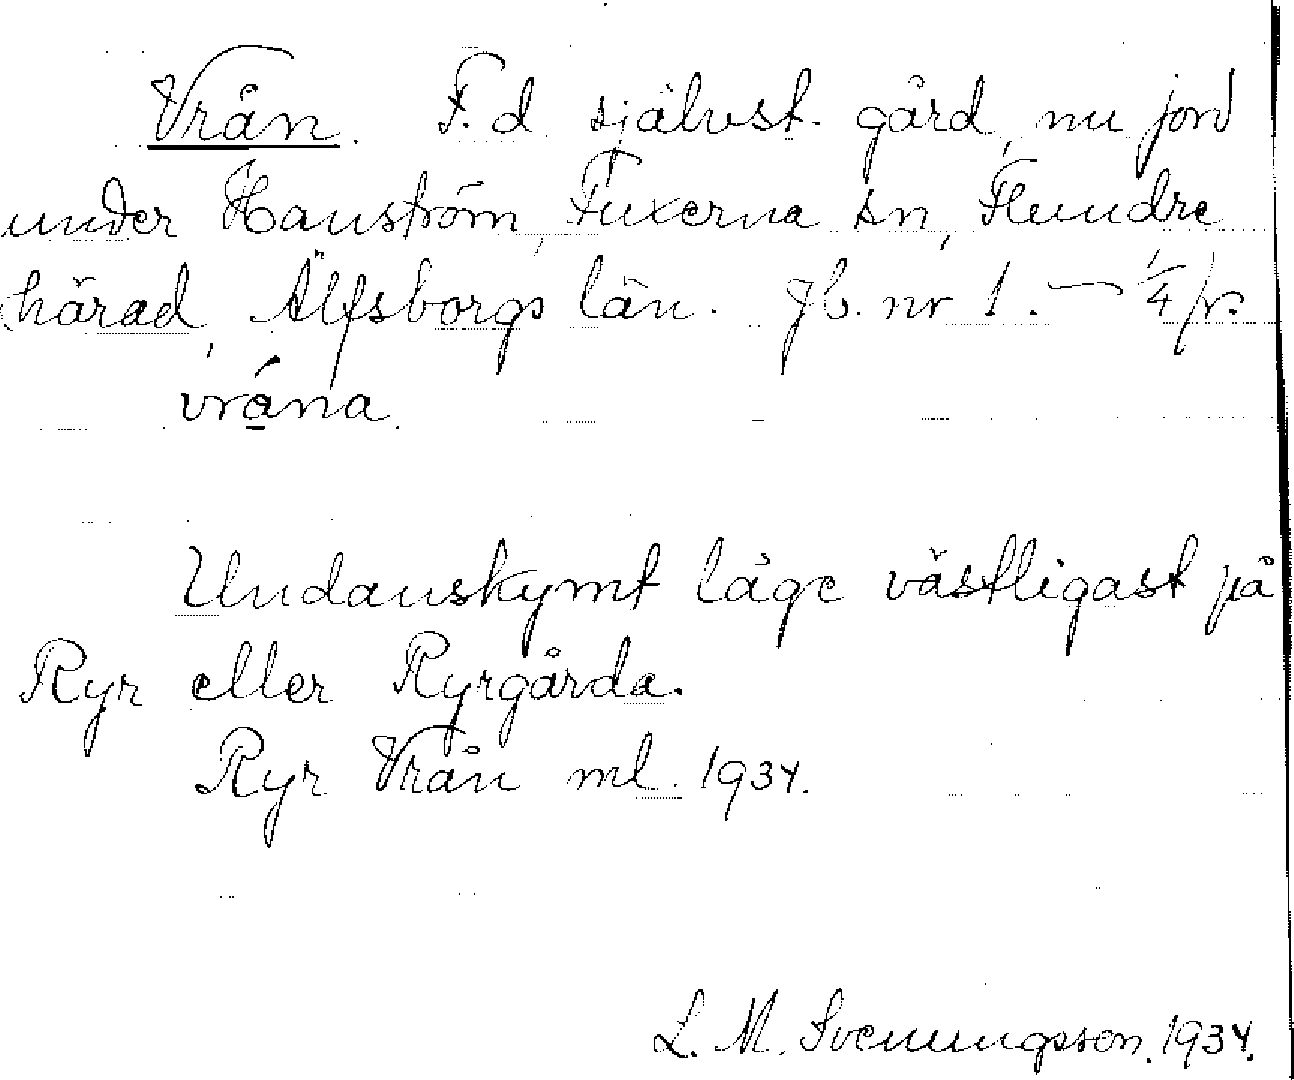 Vrån. F. d. självst. gård, nu jord
under Hanström, Fuxerna sn, Flundre
härad, Älfsborgs län. Jb. nr 1. — 1/4 fr.
vrǻna.
Undanskymt läge västligast på
Ryr eller Ryrgårda.
Ryr Vrån ml. 1934.
L. M. Svenungsson. 1934.